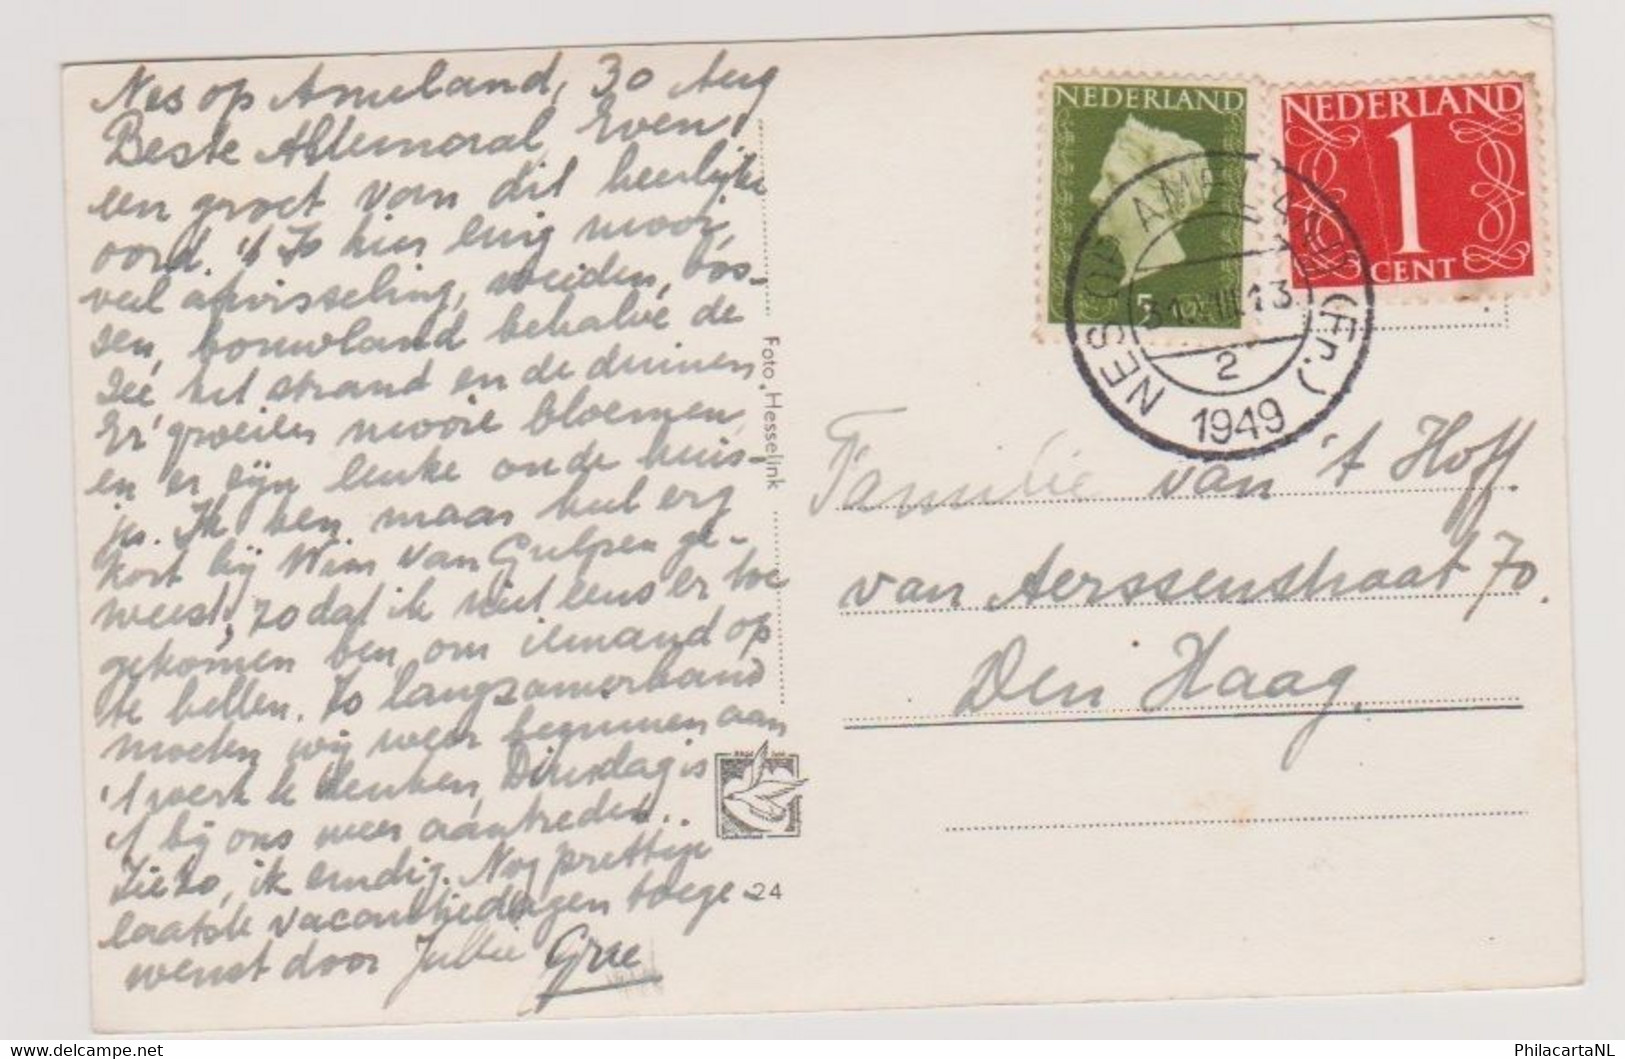 Nes op Ameland, 30 Aug
Beste Allemaal, Even
een groet van dit heerlijke
oord. 't Is hier enig mooi,
veel afwisseling, weiden, bos-
sen, bouwland behalve de
zee het strand en de duinen
Er groeien mooie bloemen,
en er zijn leuke oude huis-
jes. Ik ben maar heel erg
kort bij Wim van Gulpen ge-
weest, zodat ik niet eens er toe
gekomen ben om iemand op
te bellen. Zo langzamerhand
moeten wij weer beginnen aan
't werk te denken, Dinsdag is
't bij ons weer aantreden..
Ziezo, ik eindig. Nog prettige
laatste vacantiedagen toege-
wenst door Jullie Gree
Foto „Hesselink
24
NEDERLAND
5
NEDERLAND
1
CENT
NES OP AMELAND (Fr.)
2
1949
Familie van 't Hoff.
van Aerssenstraat 70.
Den Haag.
PhilacartaNL